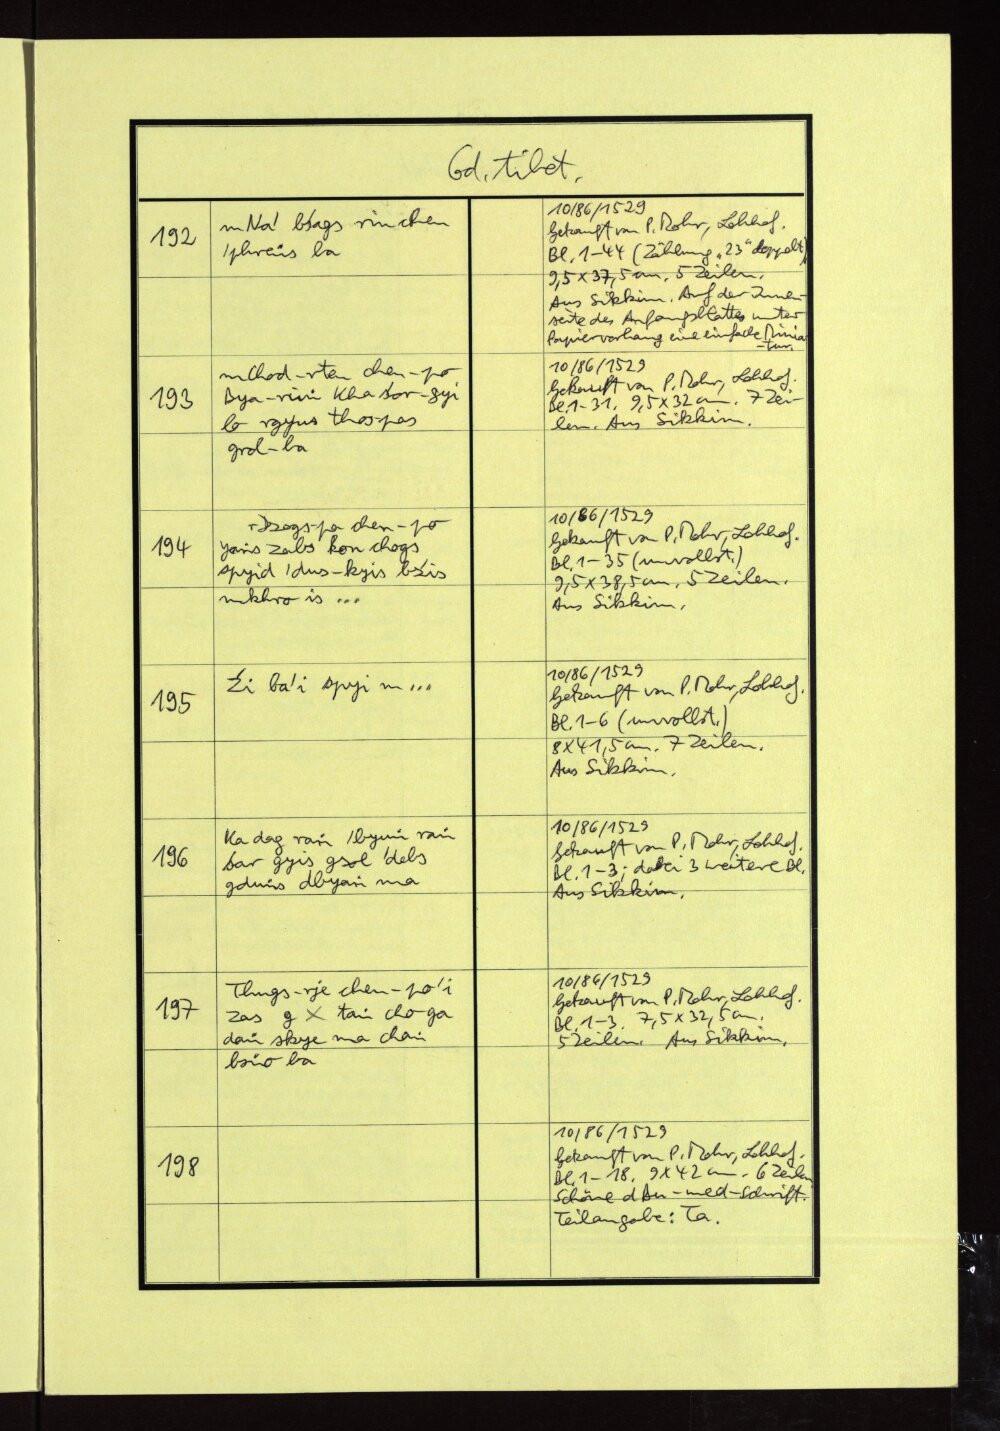 Cod. tibet.
192
mNa' bsags rin chen
'phreṅs ba
10/86/1529
Gekauft von P. Mohr, Lohhof.
Bl. 1-44 (Zählung „23" doppelt)
9,5 x 37,5 cm. 5 Zeilen.
Aus Sikkim. Auf der Innen-
seite des Anfangsblattes unter
Papiervorhang eine einfache Minia
-tur.
193
mChod-rten chen-po
Bya-ruṅ Kha śor-gyi
lo rgyus thos-pas
grol-ba
10/86/1529
Gekauft von P. Mohr, Lohhof.
Bl. 1-31. 9,5 x 32 cm. 7 Zei-
len. Aus Sikkim.
194
rDzogs-pa chen-po
yaṅs zabs kon chogs
spyid 'dus-kyis bźis
mkhro is ...
10/86/1529
Gekauft von P. Mohr, Lohhof.
Bl. 1-35 (unvollst.)
9,5 x 38,5 cm. 5 Zeilen.
Aus Sikkim.
195
Źi ba'i spyi m...
10/86/1529
Gekauft von P. Mohr, Lohhof.
Bl. 1-6 (unvollst.)
8 x 41,5 cm. 7 Zeilen.
Aus Sikkim.
196
Ka dag raṅ 'byuṅ raṅ
śar gyis gsol 'debs
gduṅs dbyaṅ ma
10/86/1529
Gekauft von P. Mohr, Lohhof.
Bl. 1-3; dabei 3 weitere Bl.
Aus Sikkim.
197
Thugs-rje chen-po'i
zas g X taṅ cho-ga
daṅ skye ma chaṅ
bsṅo ba
10/86/1529
Gekauft von P. Mohr, Lohhof.
Bl. 1-3. 7,5 x 32,5 cm.
5 Zeilen. Aus Sikkim.
198
10/86/1529
Gekauft von P. Mohr, Lohhof.
Bl. 1-18. 9 x 42 cm. 6 Zeilen
Schöne dBu-med-Schrift.
Teilangabe: Ta.